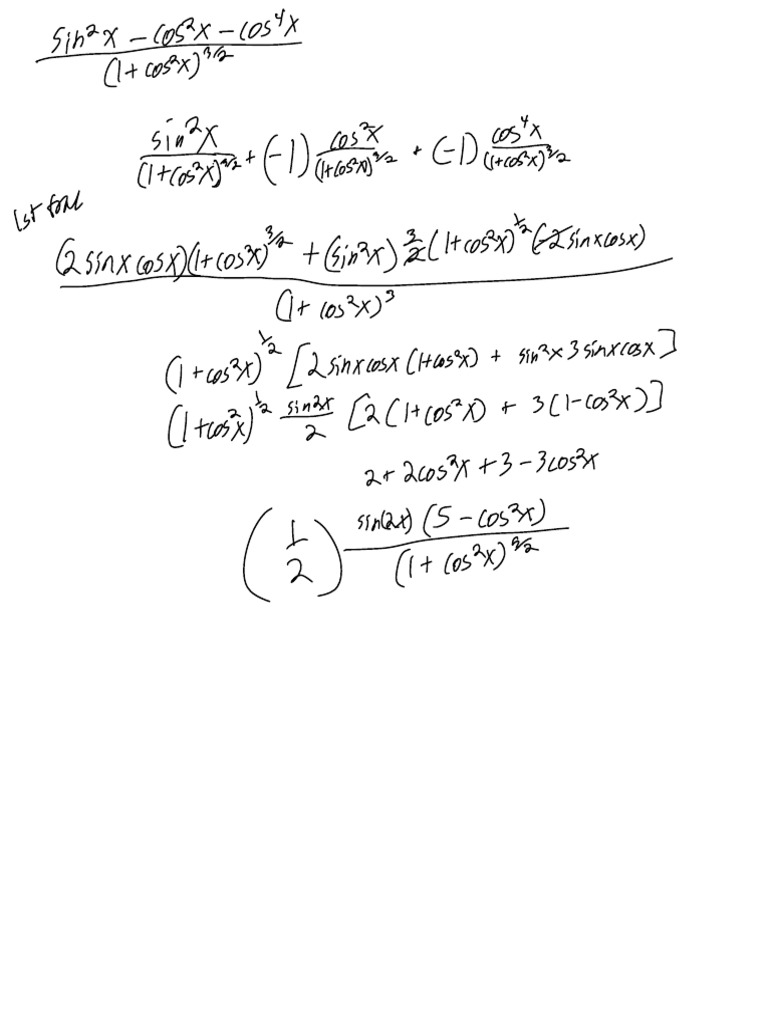 sin²x − cos²x − cos⁴x
(1 + cos²x)^3/2
sin²x/(1+cos²x)^3/2 + (−1) cos²x/(1+cos²x)^3/2 + (−1) cos⁴x/(1+cos²x)^3/2
1st
(2 sinx cosx)(1+cos²x)^3/2 + (sin²x) 3/2 (1+cos²x)^1/2 (−2 sinx cosx)
(1 + cos²x)³
(1 + cos²x)^1/2 [2 sinx cosx (1+cos²x) + sin²x 3 sinx cosx]
(1 + cos²x)^1/2 sin2x/2 [2(1+cos²x) + 3(1−cos²x)]
2 + 2cos²x + 3 − 3cos²x
(1/2) sin(2x) (5 − cos²x)
(1 + cos²x)